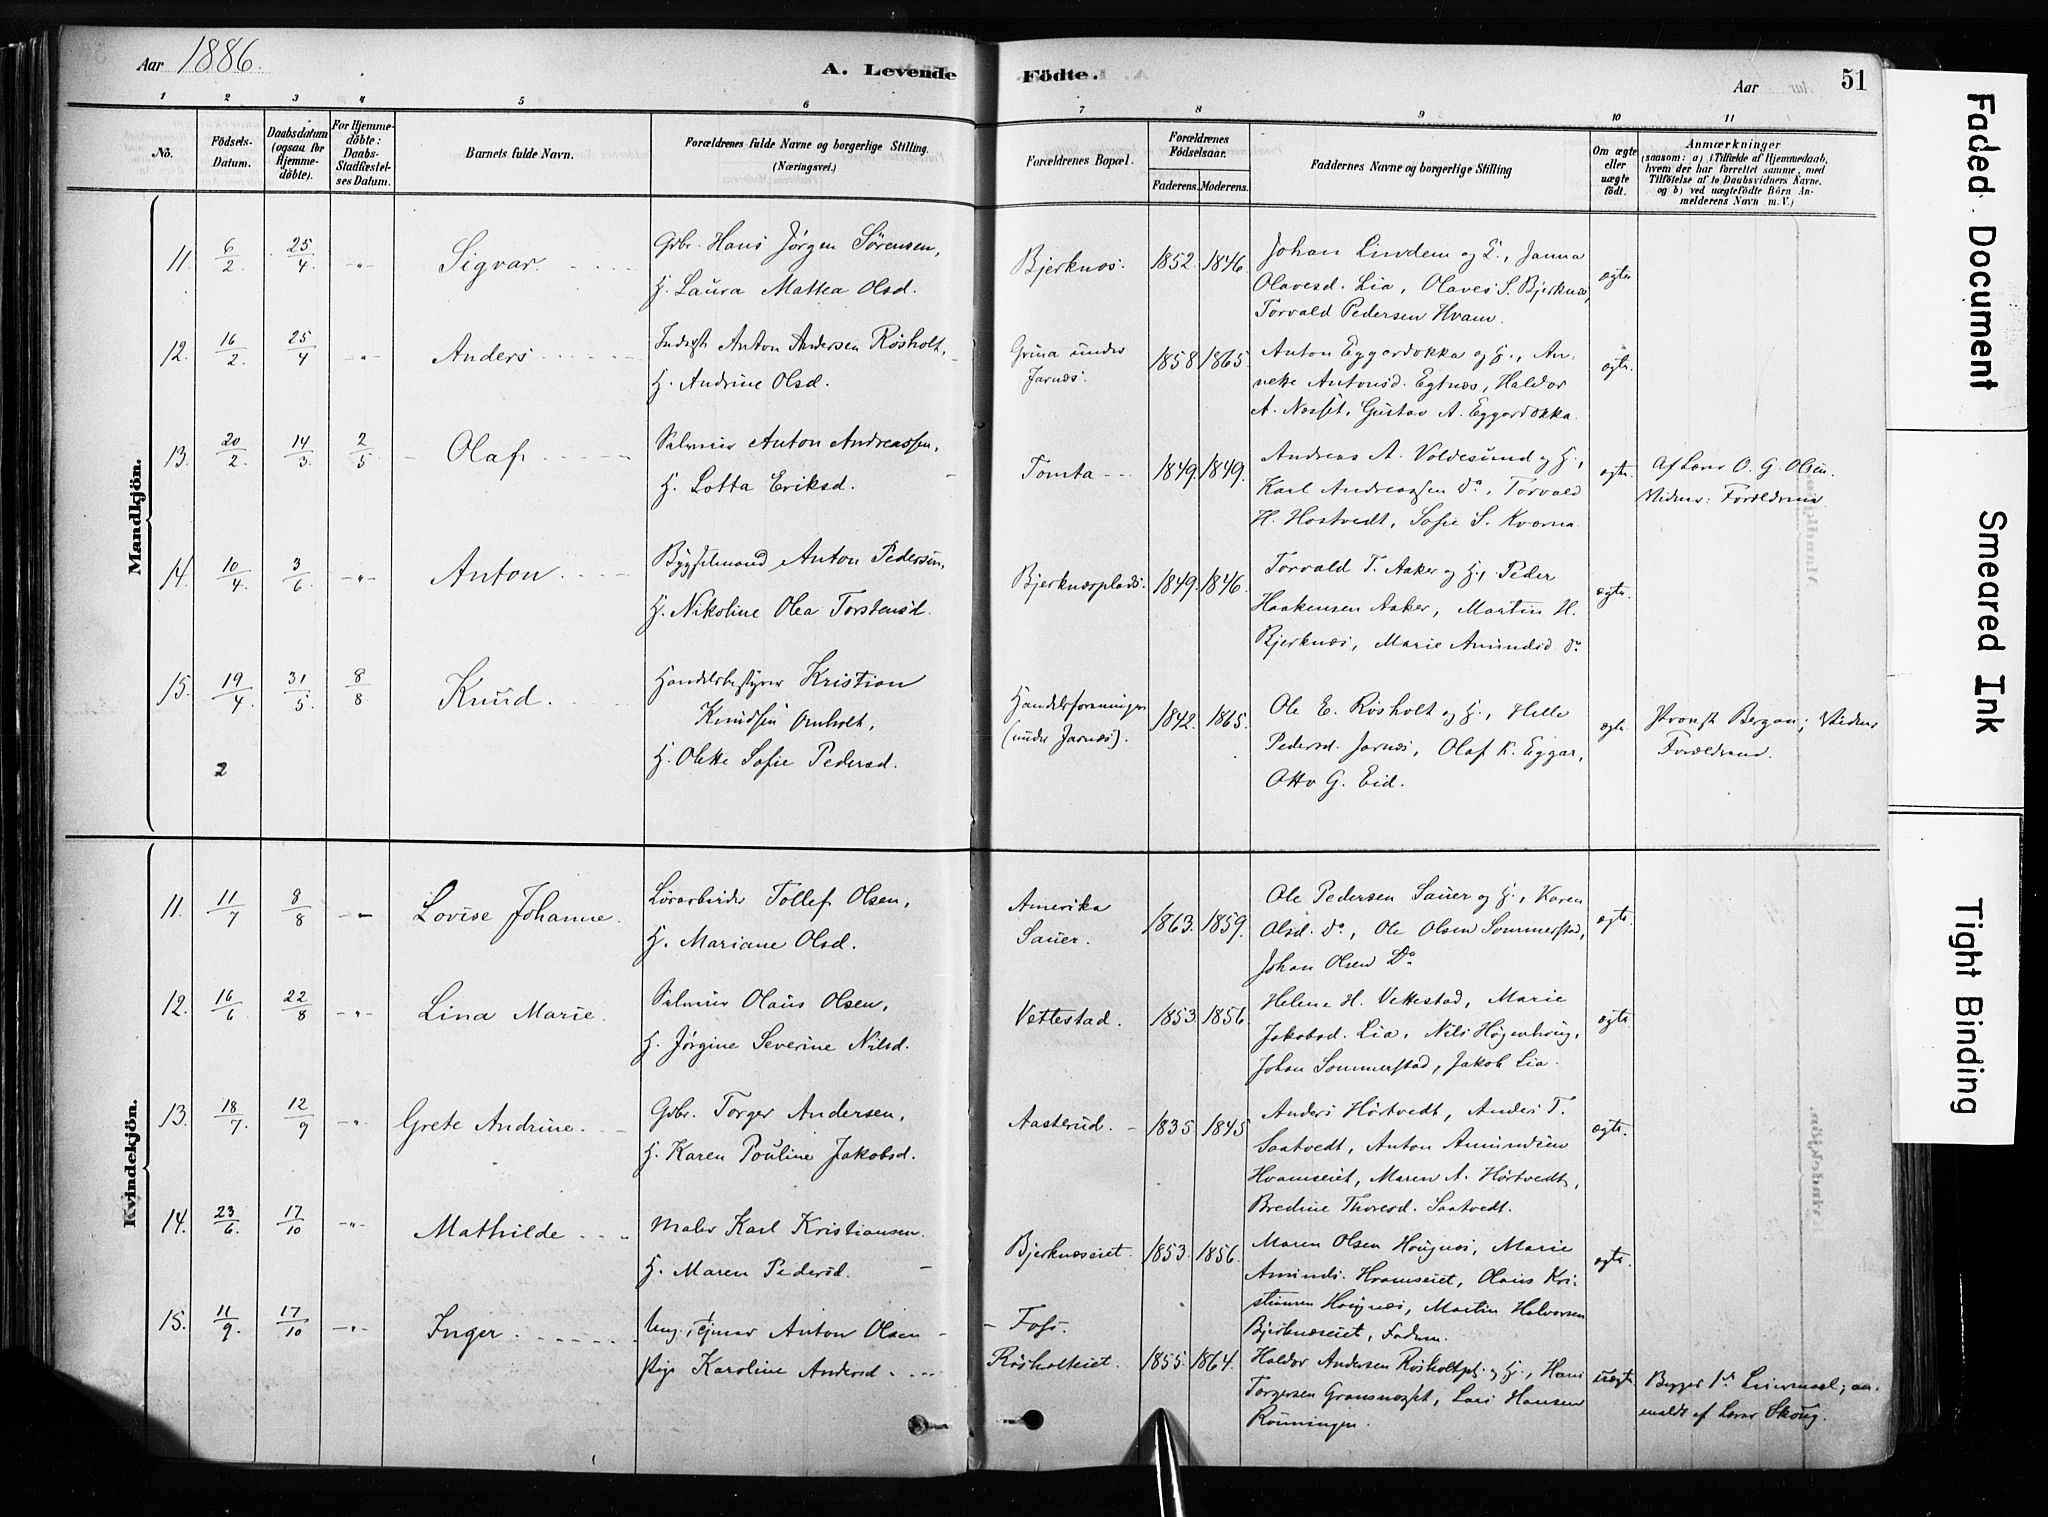 Aar 1886.
A. Levende Födte.
Aar
51
1 2 3 4 5 6 7 8 9 10 11
Nö.
Födsels-Datum.
Daabsdatum (ogsaa för Hjemme-döbte).
For Hjemme-döbte: Daabs-Stadfæstel-ses Datum.
Barnets fulde Navn.
Forældrenes fulde Navne og borgerlige Stilling. (Næringsvei.)
Forældrenes Bopæl.
Forældrenes Födselsaar.
Faderens. Moderens.
Faddernes Navne og borgerlige Stilling
Om ægte eller uægte födt.
Anmærkninger
(saasom: a) i Tilfælde af Hjemmedaab,
hvem der har forrettet samme, med
Tilföielse af to Daabsvidners Navne.
og b) ved uægtefödte Börn An-
melderens Navn m. V.)
Mandkjön.
11. 6/2 25/4 -"- Sigvar. Gbr. Hans Jørgen Sörensen, Bjerknæs. 1852. 1846. Johan Lindem og H., Janna ægte
H. Laura Mathea Olsd. Olavesd. Lia, Olaves S. Bjerknæs,
Torvald Pedersen Hvam.
12. 16/2 25/4 -"- Anders Inderst Anton Andersen Rösholt, Grina under 1858 1865. Anton Eggerdokka og H., An- ægte.
H. Andrine Olsd. Jarnæs. nette Antonsd. Egtnæs, Haldor
A. Næsset, Gustav A. Eggerdokka.
13. 20/2 14/3 2/5 Olaf Anton Andreassen, Tomta 1849. 1849. Andreas A. Voldesund og H., ægte. Af Lærer O. G. Olsen.
H. Lotta Eriksd. Karl Andreassen do, Torvald Vidner: Forældrene
H. Hostvedt, Sofie S. Kværna.
14. 10/4 3/6 -"- Anton Bygselmand Anton Pedersen, Bjerknæsplads. 1849. 1846. Torvald T. Aaker og H., Peder ægte.
H. Nikoline Olea Torstensd. Haakensen Aaker, Martin H.
Bjerknæs, Marie Amundsd do.
15. 19/4 31/5 8/8 Knud. Handelsbestyrer Kristian Handelsforeningen 1842. 1865. Ole E. Rösholt og H., Helle ægte. Provst Bergan; Vidner
Knudsen Ornholt, (under Jarnæs). Pedersd. Jarnæs, Olaf K. Eggar, Forældrene.
H. Olette Sofie Pedersd. Otto G. Eid.
2
Kvindekjön.
11. 11/7 8/8 -"- Lovise Johanne. Tollef Olsen, Amerika 1863. 1859. Ole Pedersen Sauer og H., Karen ægte.
H. Mariane Olsd. Sauer. Olsd. do, Ole Olsen Sommerstad,
Johan Olsen Do
12. 16/6 22/8 -"- Lina Marie. Olaus Olsen, Vettestad. 1853. 1856 Helene H. Vettestad, Marie ægte
H. Jørgine Severine Nilsd. Jakobsd. Lia, Nils Högenhoug,
Johan Sommerstad, Jakob Lia.
13. 18/7 12/9 -"- Grete Andrine. Gbr. Torger Andersen, Aasterud. 1835. 1845 Anders Hörtvedt, Anders T. ægte.
H. Karen Pouline Jakobsd. Saatvedt, Anton Amundsen
Hvamseiet, Maren A. Hörtvedt,
Bredine Thoresd. Saatvedt.
14. 23/6 17/10 -"- Mathilde Maler Karl Kristiansen. Bjerknæseiet. 1853. 1856. Maren Olsen Hougnæs, Marie ægte.
H. Maren Pedersd. Amunds. Hvamseiet, Olaus Kri-
stiansen Hougnæs, Martin Halvorsen
Bjerknæseiet, Faderen.
15. 11/9 17/10 -"- Inger Ung. Tjener Anton Olsen Foss.
Pige Karoline Andersd. Rösholteiet. 1855. 1864. Haldor Andersen Rösholtpl. og H., Hans uægte Begges 1ste Leiermaal; an-
Torgersen Gransnæsset, Lars Hansen meldt af Lærer Skoug.
Rönningen.
Faded Document
Smeared Ink
Tight Binding